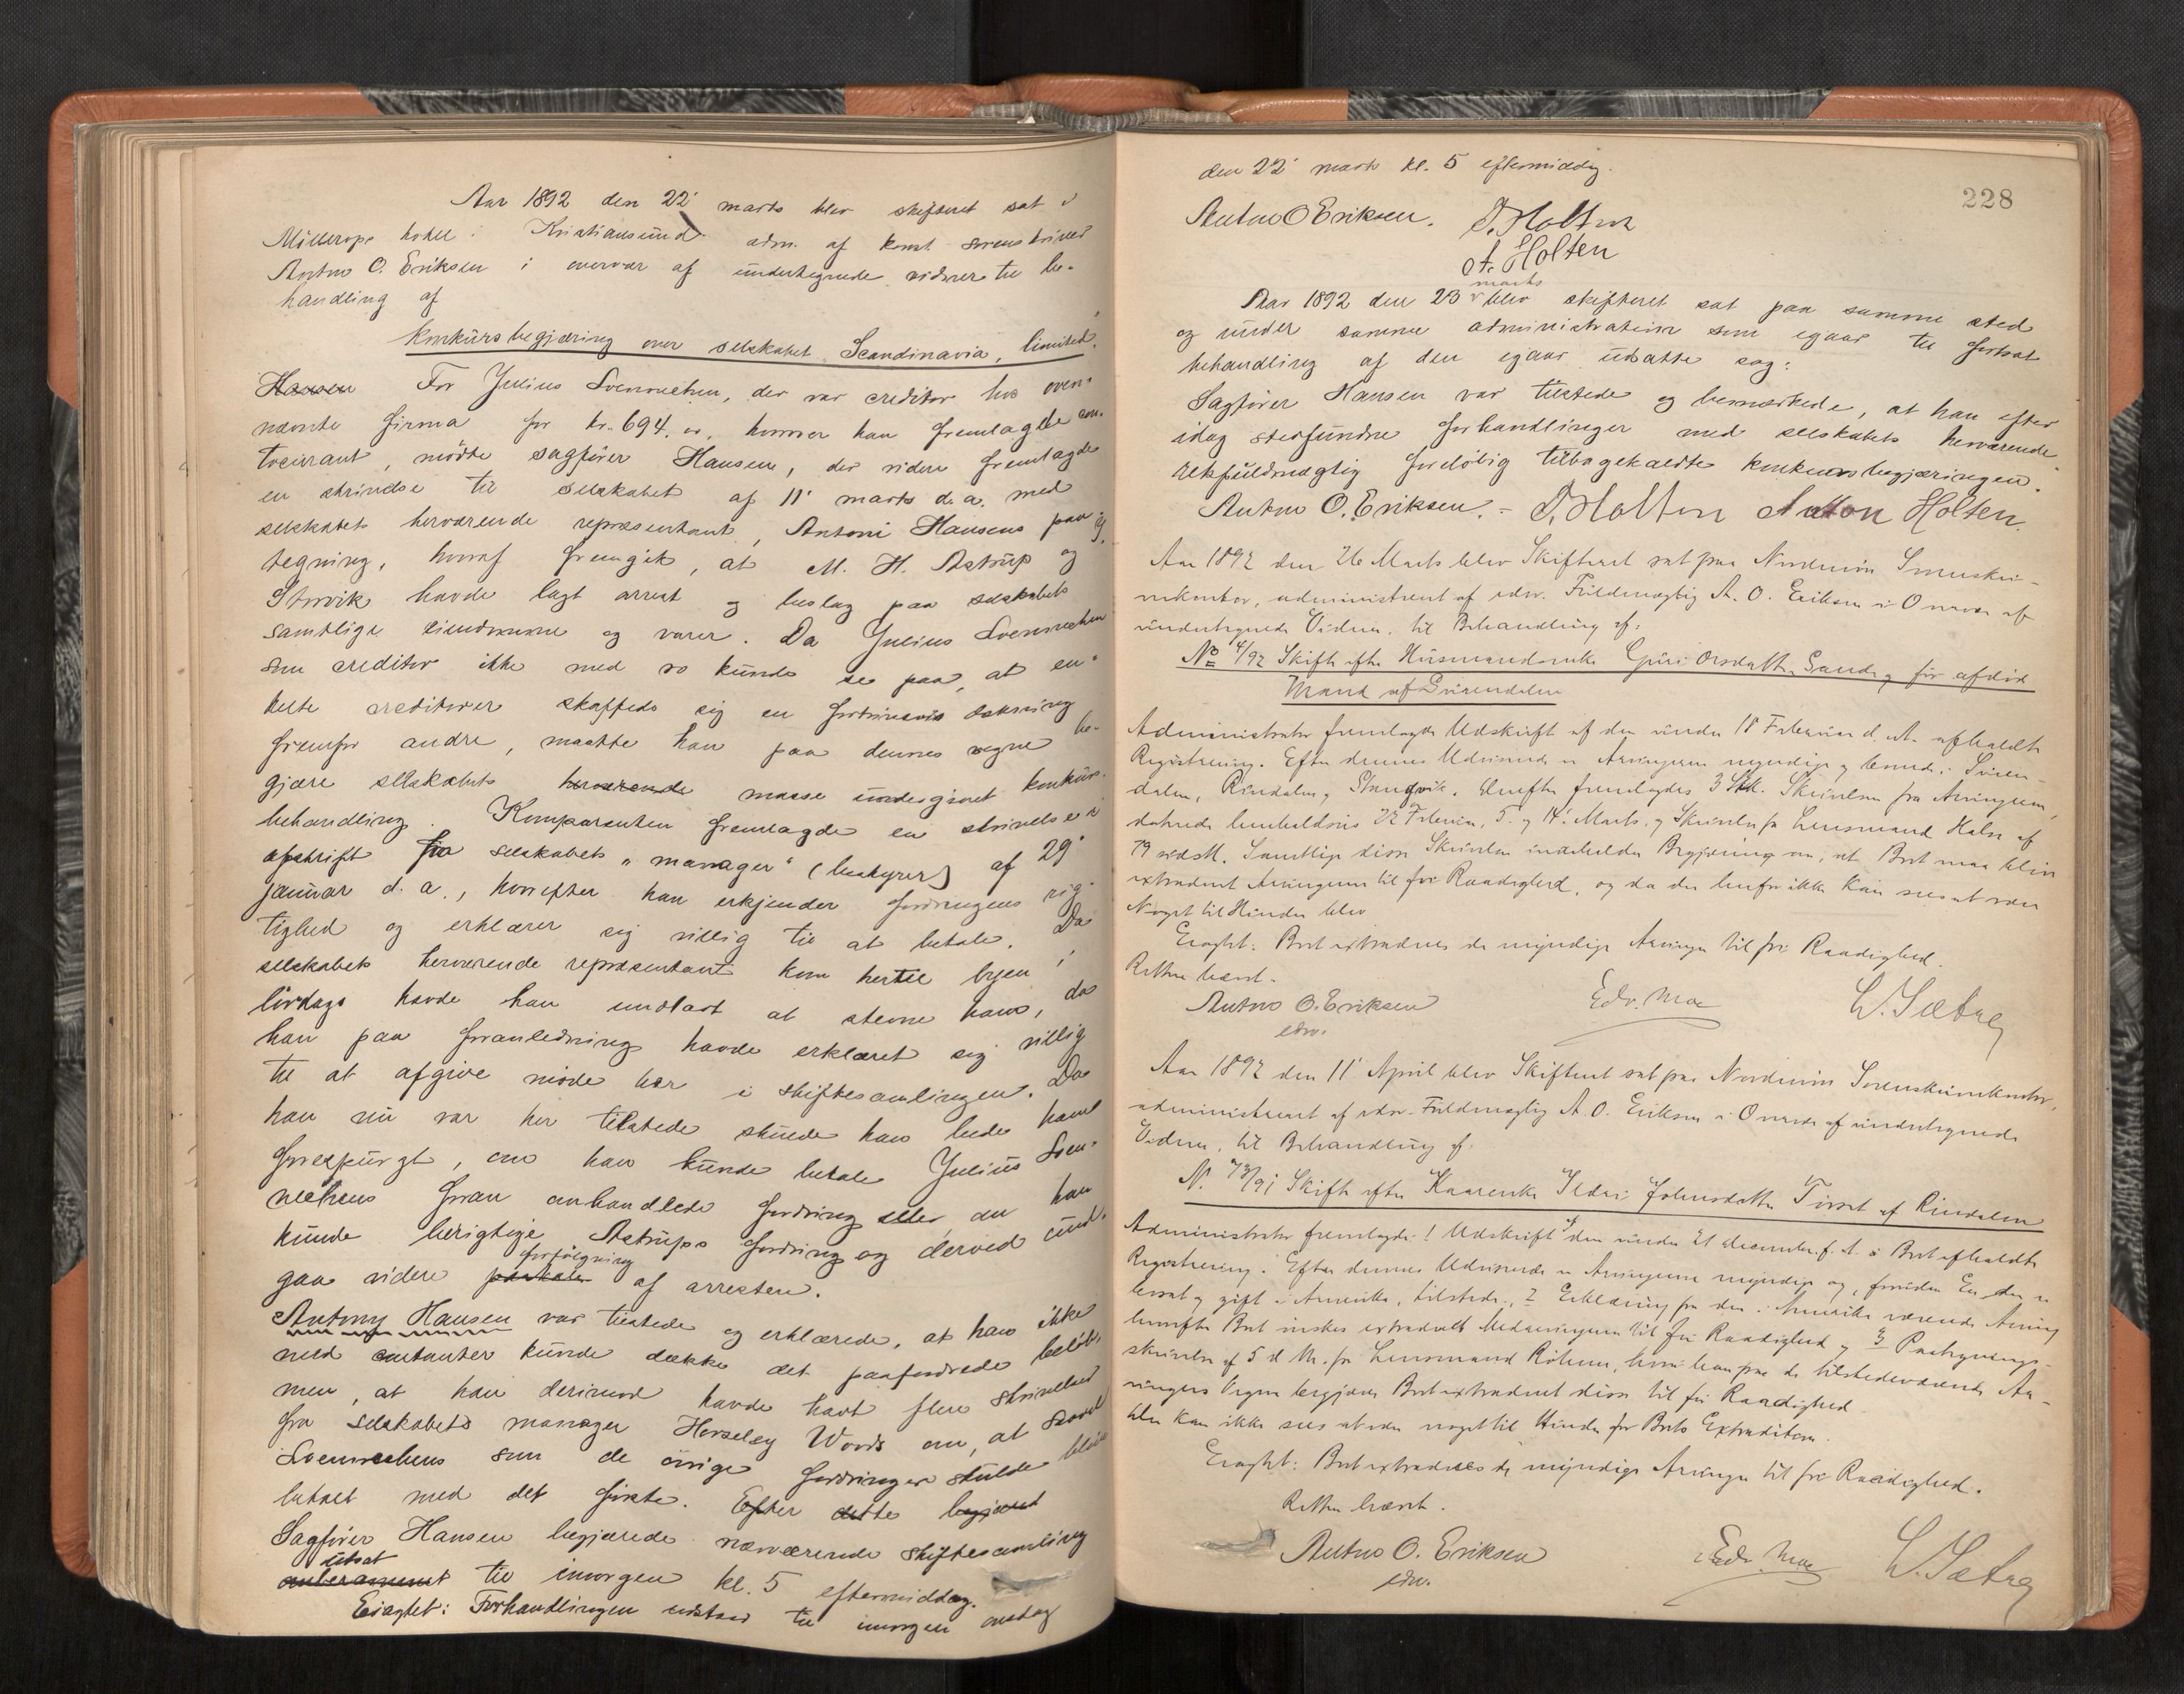 Aar 1892 den 22' marts blev skifteret sat i
Møllerops hotel i Kristiansund adm. af konst. sorenskriver
Anton O. Eriksen i overvær af undertegnede vidner til be-
handling af
konkursbegjæring over selskabet Scandinavia, limited.
Hansen For Julius Svennechen, der var creditor hos oven-
nævnte firma for kr. 694, hvorover han fremlagde con-
tocurant, mødte sagfører Hansen, der videre fremlagde
en skrivelse til selskabet af 11' marts d. a. med
selskabets herværende repræsentant, Antoni Hansens paa-
tegning, hvoraf fremgik, at M. H. Astrup og
Storvik havde lagt arrest og beslag paa selskabets
samtlige eiendomme og varer. Da Julius Svennechen
som creditor ikke med ro kunde se paa, at en-
kelte creditorer skaffede sig en fortrinsvis dækning
fremfor andre, maatte han paa dennes vegne be-
gjære selskabets herværende masse undergivet konkurs-
behandling. Komparenten fremlagde en skrivelse i
afskrift fra selskabets "manager" (bestyrer) af 29'
januar d. a., hvorefter han erkjender fordringens rig-
tighed og erklærer sig villig til at betale. Da
selskabets herværende repræsentant kom hertil byen i
lørdags havde han undladt at stevne ham, da
han paa foranledning havde erklæret sig villig
til at afgive møde her i skiftesamlingen. Da
han nu var her tilstede skulde han bede ham
forespurgt, om han kunde betale Julius Sven-
nechens foran omhandlede fordring eller om han
kunde berigtige Astrups fordring og derved und-
gaa videre forfølgning af arresten.
Antony Hansen var tilstede og erklærede, at han ikke
med contanter kunde dække det paafordrede beløb,
men, at han derimod havde havt flere skrivelser
fra selskabets manager Horseley Woods om, at saavel
Svennechens som de øvrige fordringer skulde blive
betalt med det første. Efter dette begjæret
Sagfører Hansen begjærede nærværende skiftesamling
udsat
anberammet til imorgen kl. 5 eftermiddag.
Eragtet: Forhandlingen udstaar til imorgen onsdag
den 22' marts kl. 5 eftermiddag.
228
Anton O Eriksen. T. Holten
A. Holten
marts
Aar 1892 den 23' blev skifteret sat paa samme sted
og under samme administration som igaar til fortsat
behandling af den igaar udsatte sag:
Sagfører Hansen var tilstede og bemærkede, at han efter
idag stedfundne forhandlinger med selskabets herværende
befuldmægtig foreløbig tilbagekaldte konkursbegjæringen.
Anton O. Eriksen. - T. Holten Anton Holten.
Aar 1892 den 26 Marts blev Skifteret sat paa Nordmøre Sorenskri-
verkontor, administreret af edsv. Fuldmægtig A. O. Eriksen i Overvær af
undertegnede Vidner, til Behandling af:
No 4/92 Skifte efter Husmandsenke Guri Orsdatter Sande og før afdød
Mand af Surendalen
Administrator fremlagde Udskrift af den under 18 Februar d. A. afholdte
Registrering. Efter dennes Udvisende er Arvingerne myndige og boende i Suren-
dalen, Rindalen og Stangvik. Derefter fremlagdes 3 Stk. Skrivelser fra Arvingerne,
daterede henholdsvis 22 Februar, 5. og 14. Marts, og Skrivelse fra Lensmand Halse af
19 sidstl. Samtlige disse Skrivelser indeholder Begjæring om, at Boet maa blive
extraderet Arvingerne til fri Raadighed, og da der herfor ikke kan sees at være
Noget til Hinder blev
Eragtet: Boet extraderes de myndige Arvinger til fri Raadighed.
Retten hævet.
Anton O. Eriksen Edv. Moe L. Sætrey
edsv.
Aar 1892 den 11' April blev Skifteret sat paa Nordmøre Sorenskriverkontor,
administreret af edsv. Fuldmægtig A. O. Eriksen i Overvær af undertegnede
Vidner, til Behandling af:
N. 73/91 Skifte efter Kaarenke Ildri Johnsdatter Tørset af Rindalen
Administrator fremlagde: 1 Udskrift af den under 21 december f. A. i Boet afholdte
Registrering. Efter dennes Udvisende er Arvingerne myndige og, foruden En, der er
bosat og gift i Amerika, tilstede. 2 Erklæring fra den i Amerika værende Arving
hvorefter Boet ønskes extraderet Medarvingerne til fri Raadighed og 3 Paategnings-
skrivelse af 5 d. M. fra Lensmand Bøhmer, hvori han paa de tilstedeværende Ar-
vingers Vegne begjærer Boet extraderet disse til fri Raadighed.
Der kan ikke sees at være noget til Hinder for Boets Extradition.
Eragtet: Boet extraderes de myndige Arvinger til fri Raadighed.
Retten hævet.
Anton O. Eriksen Edv. Moe L. Sætrey
edsv.